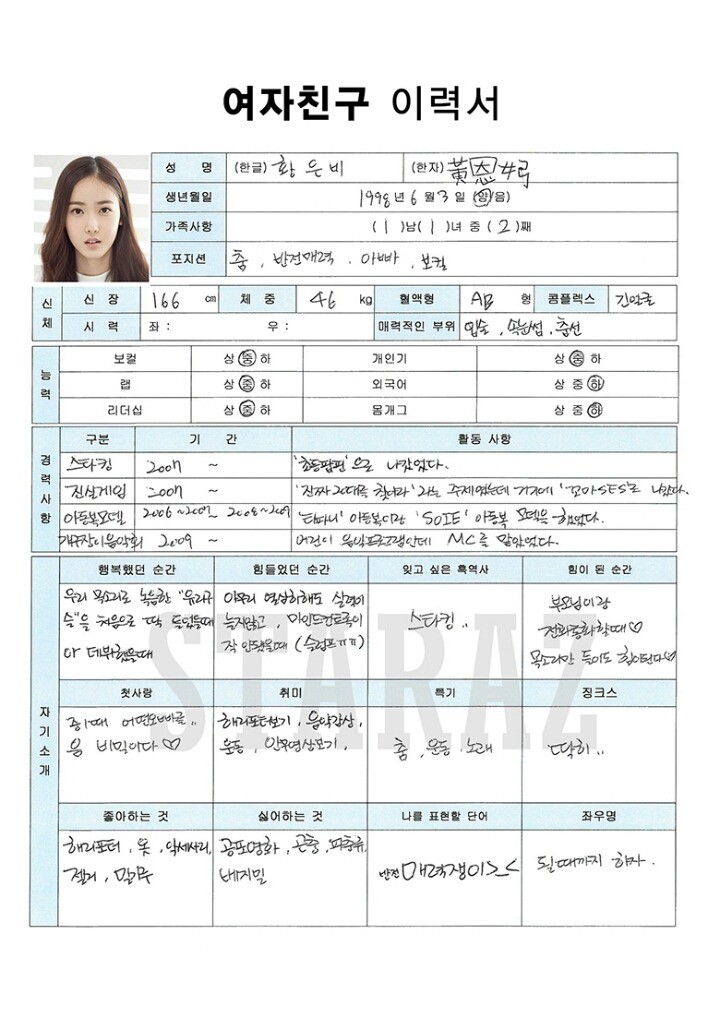 여자친구 이력서
성 명 (한글) 황은비 (한자) 黃恩
생년월일 1998년 6월 3일 (양/음)
가족사항 (1)남(1)녀 중 (2)째
포지션 춤, 반전매력, 아빠, 보컬
신체
신 장 166 cm 체 중 46 kg 혈액형 AB 형 콤플렉스 긴얼굴
시 력 좌: 우: 매력적인 부위 입술, 속눈썹, 춤선
능력
보컬 상 중 하 개인기 상 중 하
랩 상 중 하 외국어 상 중 하
리더십 상 중 하 몸개그 상 중 하
경력사항
구분 기 간 활동 사항
스타킹 2007 ~ '초등팝핀'으로 나갔었다.
진실게임 2007 ~ '진짜 20대를 찾아라' 라는 주제였는데 거기에 '꼬마SES'로 나갔다.
아동복모델 2006~2007 2008~2009 아동복이랑 'SOIE' 아동복 모델을 했었다.
개구장이음악회 2009 ~ 어린이 음악프로그램인데 MC를 맡았었다.
자기소개
행복했던 순간 힘들었던 순간 잊고 싶은 흑역사 힘이 된 순간
우리 목소리로 녹음한 "유리구
슬"을 처음으로 딱 들었을때
아 데뷔했을때
아무리 연습해도 실력이
늘지않고, 마인드컨트롤이
잘 안됐을때 (슬럼프ㅠㅠ)
스타킹..
부모님이랑
전화통화할때♡
목소리만 들어도 힘이된다♡
첫사랑 취미 특기 징크스
중1때 어떤오빠를..
음 비밀이다♡
해리포터보기, 음악감상,
운동, 안무영상보기,
춤, 운동, 노래
딱히..
좋아하는 것 싫어하는 것 나를 표현할 단어 좌우명
해리포터, 옷, 악세사리,
젤리, 밀가루
공포영화, 곤충, 파충류,
베지밀
반전매력쟁이><
될때까지 하자.
STARAZ